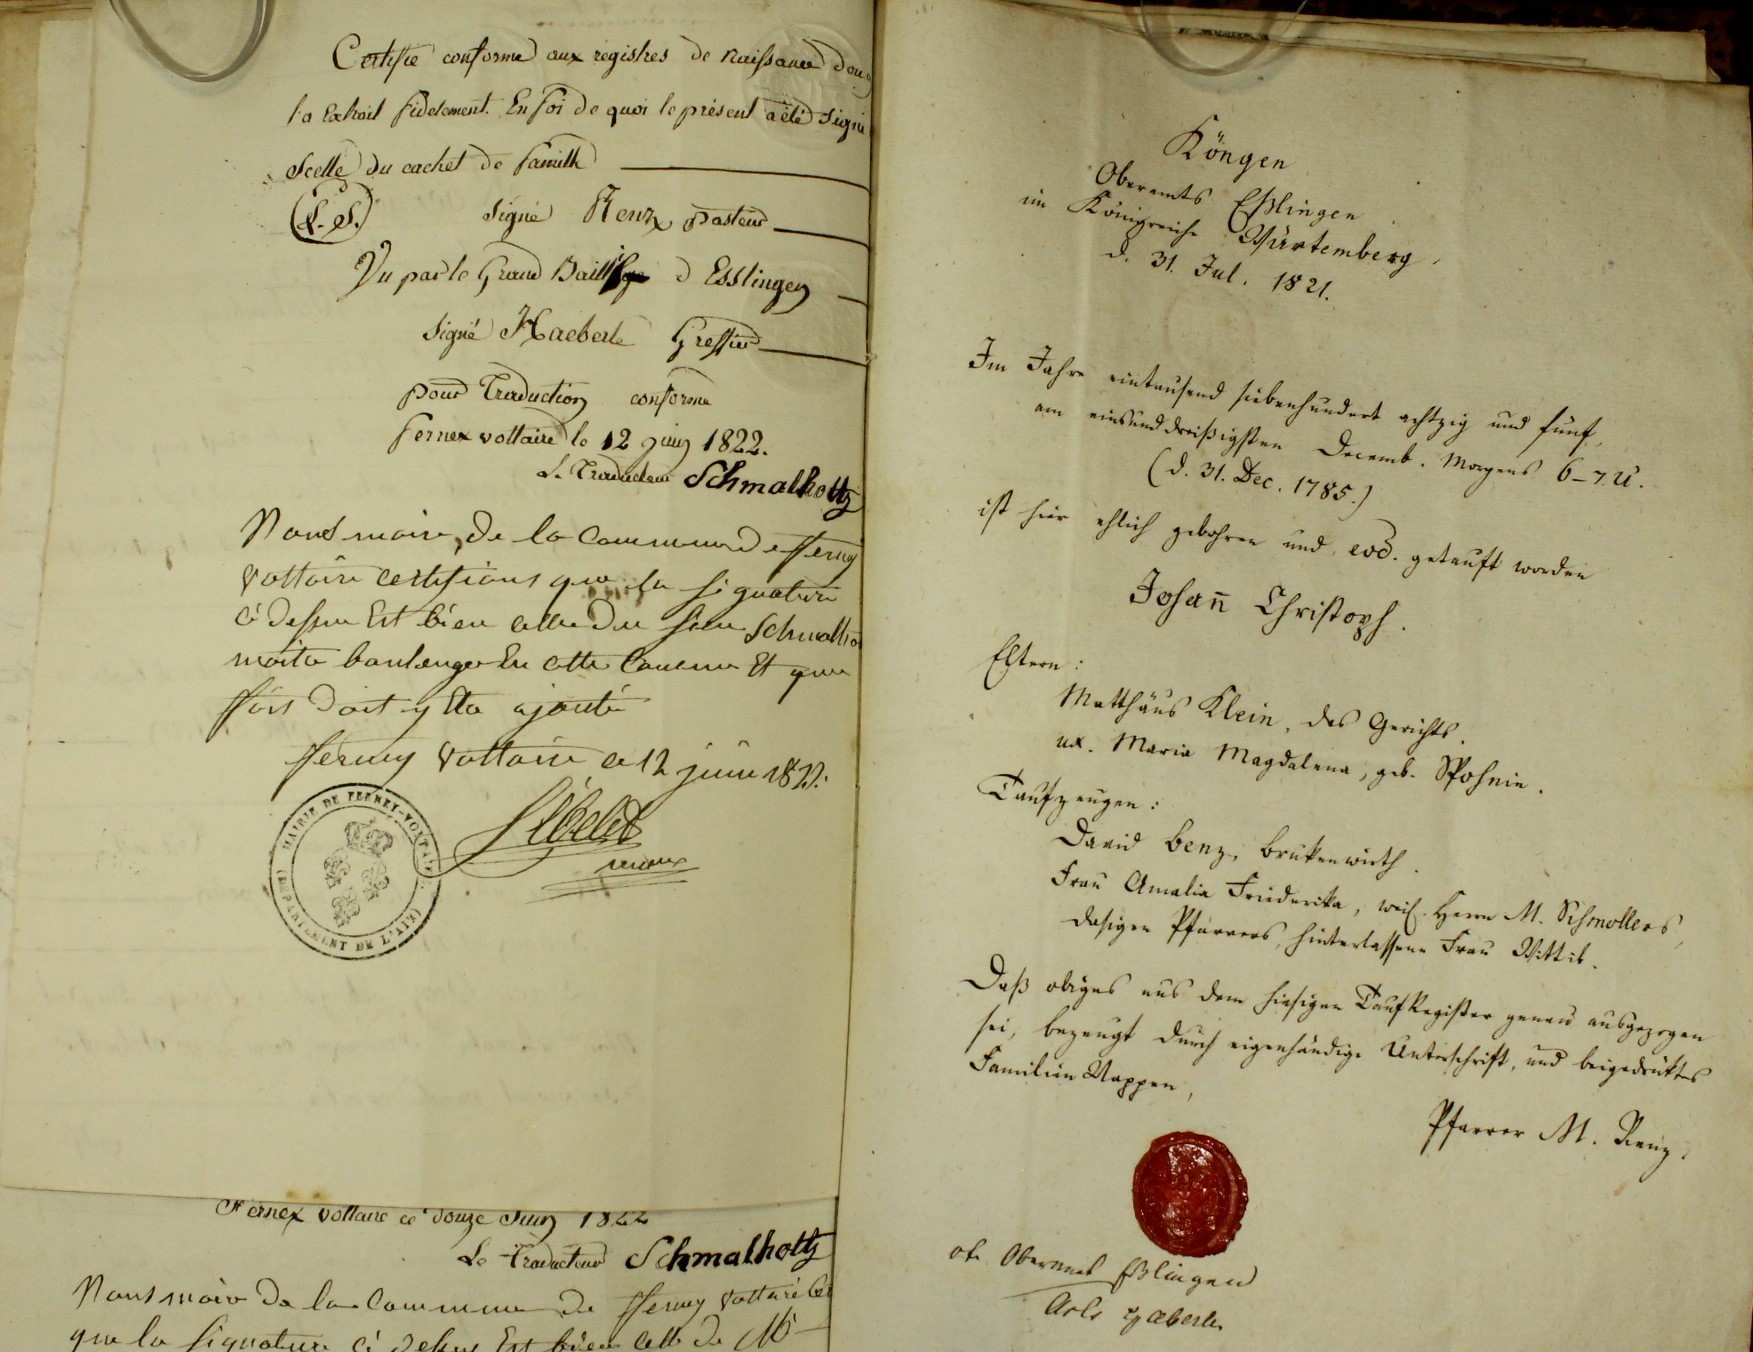 Certifié conforme aux régistres de Naissance dou
l'a Extrait fidelement. En foi de quoi le présent a été signé
scelle du cachet de famille
(L. S.)
signé Renz pasteur
Vu par le Grand Baillage d'Esslingen
signé Haeberle Greffier
pour Traduction conforme
fernex voltaire le 12 juin 1822.
Le Traducteur Schmalholtz
Nous maire de la Commune de ferney
voltaire certifions que la signature
ci dessus Est bien celle du sieur Schmalho
maitre boulanger En cette Commune Et que
fois doit y Etre ajouté
ferney voltaire ce 12 juin 1822.
maire
MAIRIE DE FERNEY-VOLTAIRE
(DEPARTEMENT DE L'AIN)
Fernex voltaire ce douze Juin 1822
Le Traducteur Schmalholtz
Nous maire de la Commune de ferney voltaire cer
que la signature ci dessus Est bien celle de Mr
Köngen
Oberamts Eßlingen
im Königreiche Würtemberg,
d. 31. Jul. 1821.
Im Jahre eintausend siebenhundert achtzig und fünf,
am einunddreißigsten Decemb. Morgens 6–7. U.
(d. 31. Dec. 1785.)
ist hier ehlich gebohren und eod. getauft worden
Johann̄ Christoph.
Eltern:
Matthäus Klein, des Gerichts.
ux. Maria Magdalena, geb. Spohnin.
Taufzeugen:
David Benz, Brukenwirth.
Frau Amalia Friederika, weil. Herrn M. Schmollers,
dasigen Pfarrers, hinterlassene Frau Wittib.
Daß obiges aus dem hiesigen Taufregister genau ausgezogen
sei, bezeugt durch eigenhändige Unterschrift, und beigedrüktes
Familien Wappen,
Pfarrer M. Renz.
Oberamt Eßlingen
Haeberle